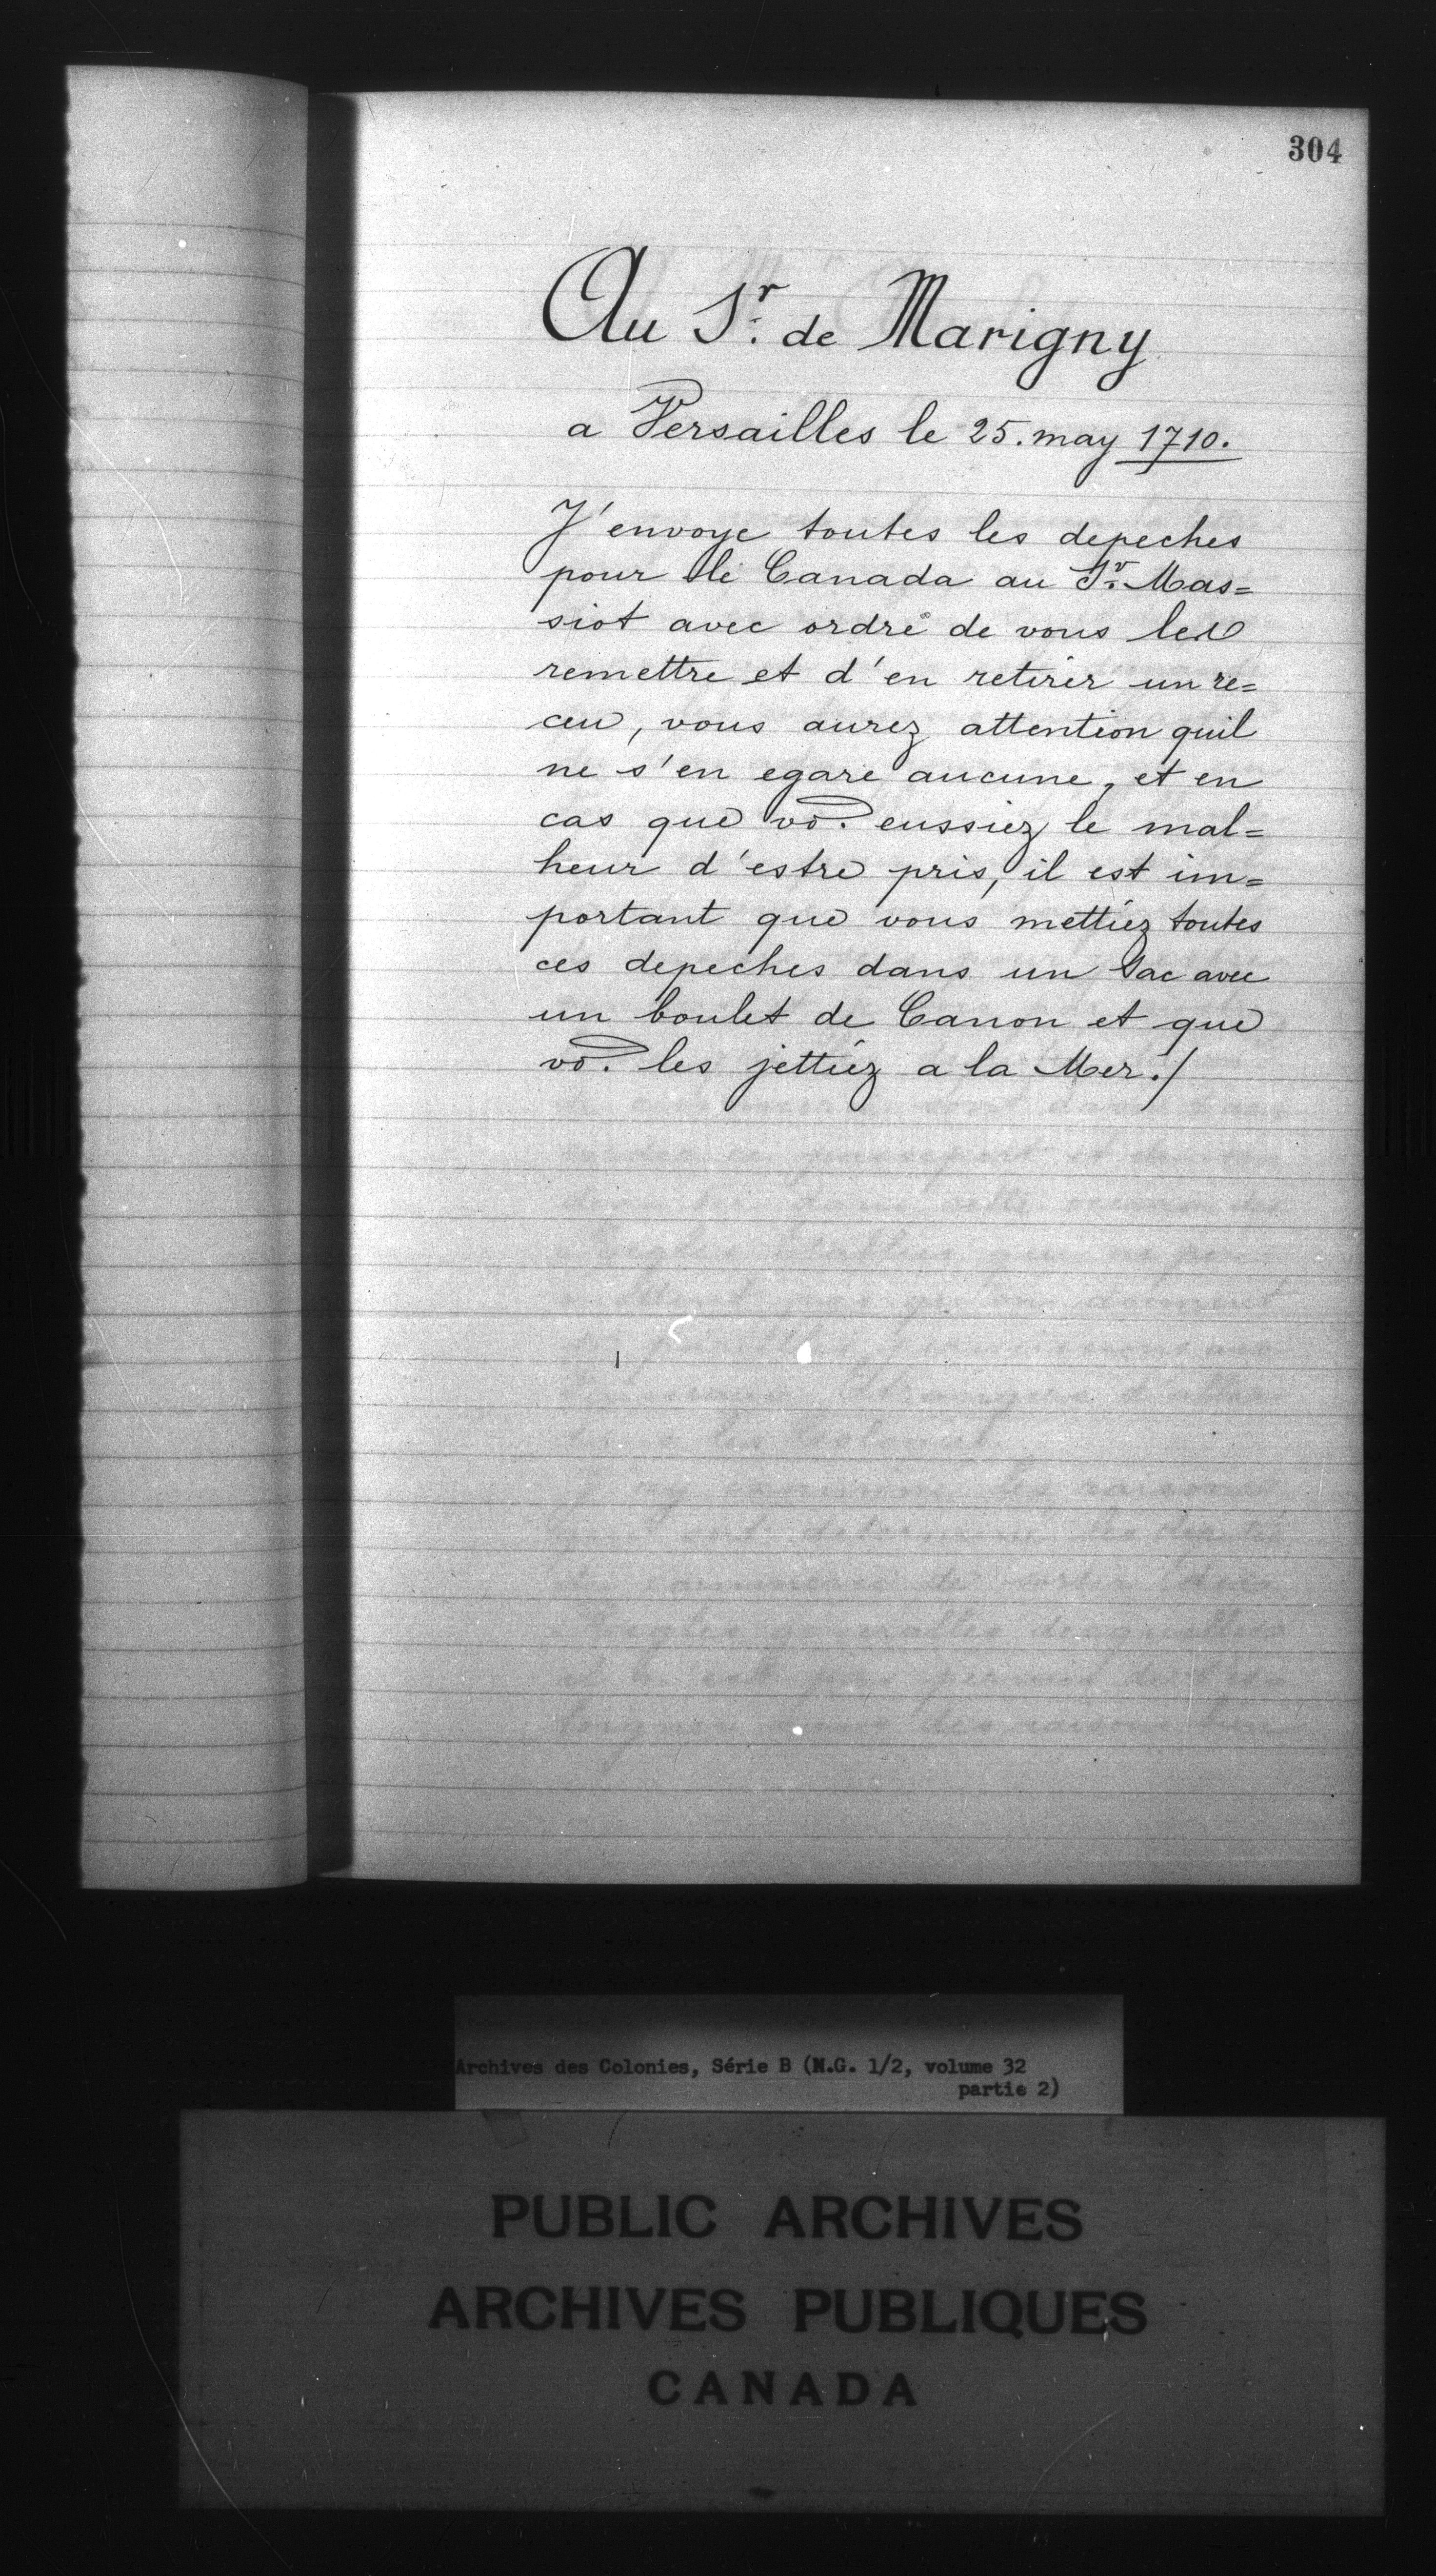 304
Au Sr. de Marigny
a Versailles le 25. may 1710.
J'envoye toutes les depeches
pour le Canada au Sr. Mas=
siot avec ordre de vous les
remettre et d'en retirer un re=
ceu, vous aurez attention quil
ne s'en egare aucune, et en
cas que vo. eussiez le mal=
heur d'estre pris, il est im=
portant que vous mettiez toutes
ces depeches dans un sac avec
un boulet de Canon et que
vo. les jettiez a la Mer./
Archives des Colonies, Série B (M.G. 1/2, volume 32
partie 2)
PUBLIC ARCHIVES
ARCHIVES PUBLIQUES
CANADA